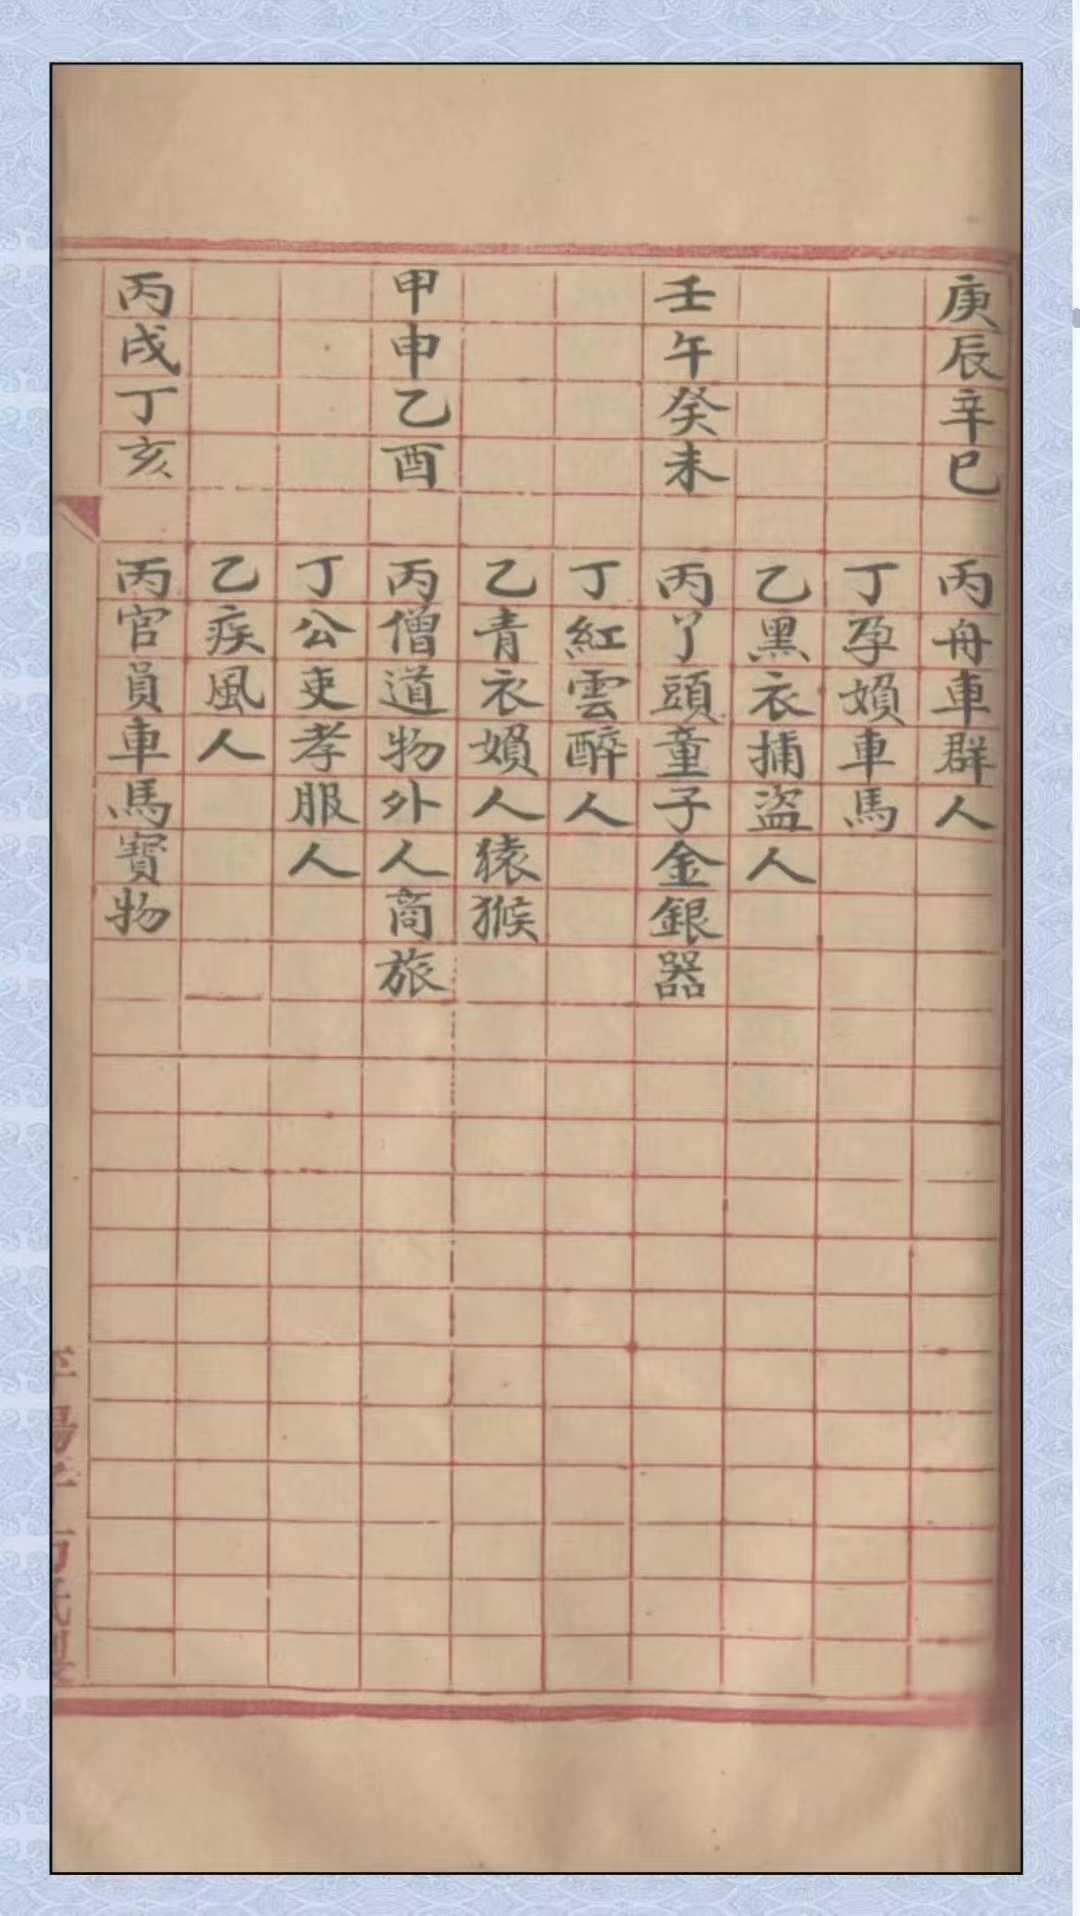 庚辰辛巳　丙舟車群人
丁孕嬪車馬
乙黑衣捕盜人
壬午癸未　丙丫頭童子金銀器
丁紅雲醉人
乙青衣嬪人猿猴
甲申乙酉　丙僧道物外人商旅
丁公吏孝服人
乙疾風人
丙戌丁亥　丙官員車馬寶物